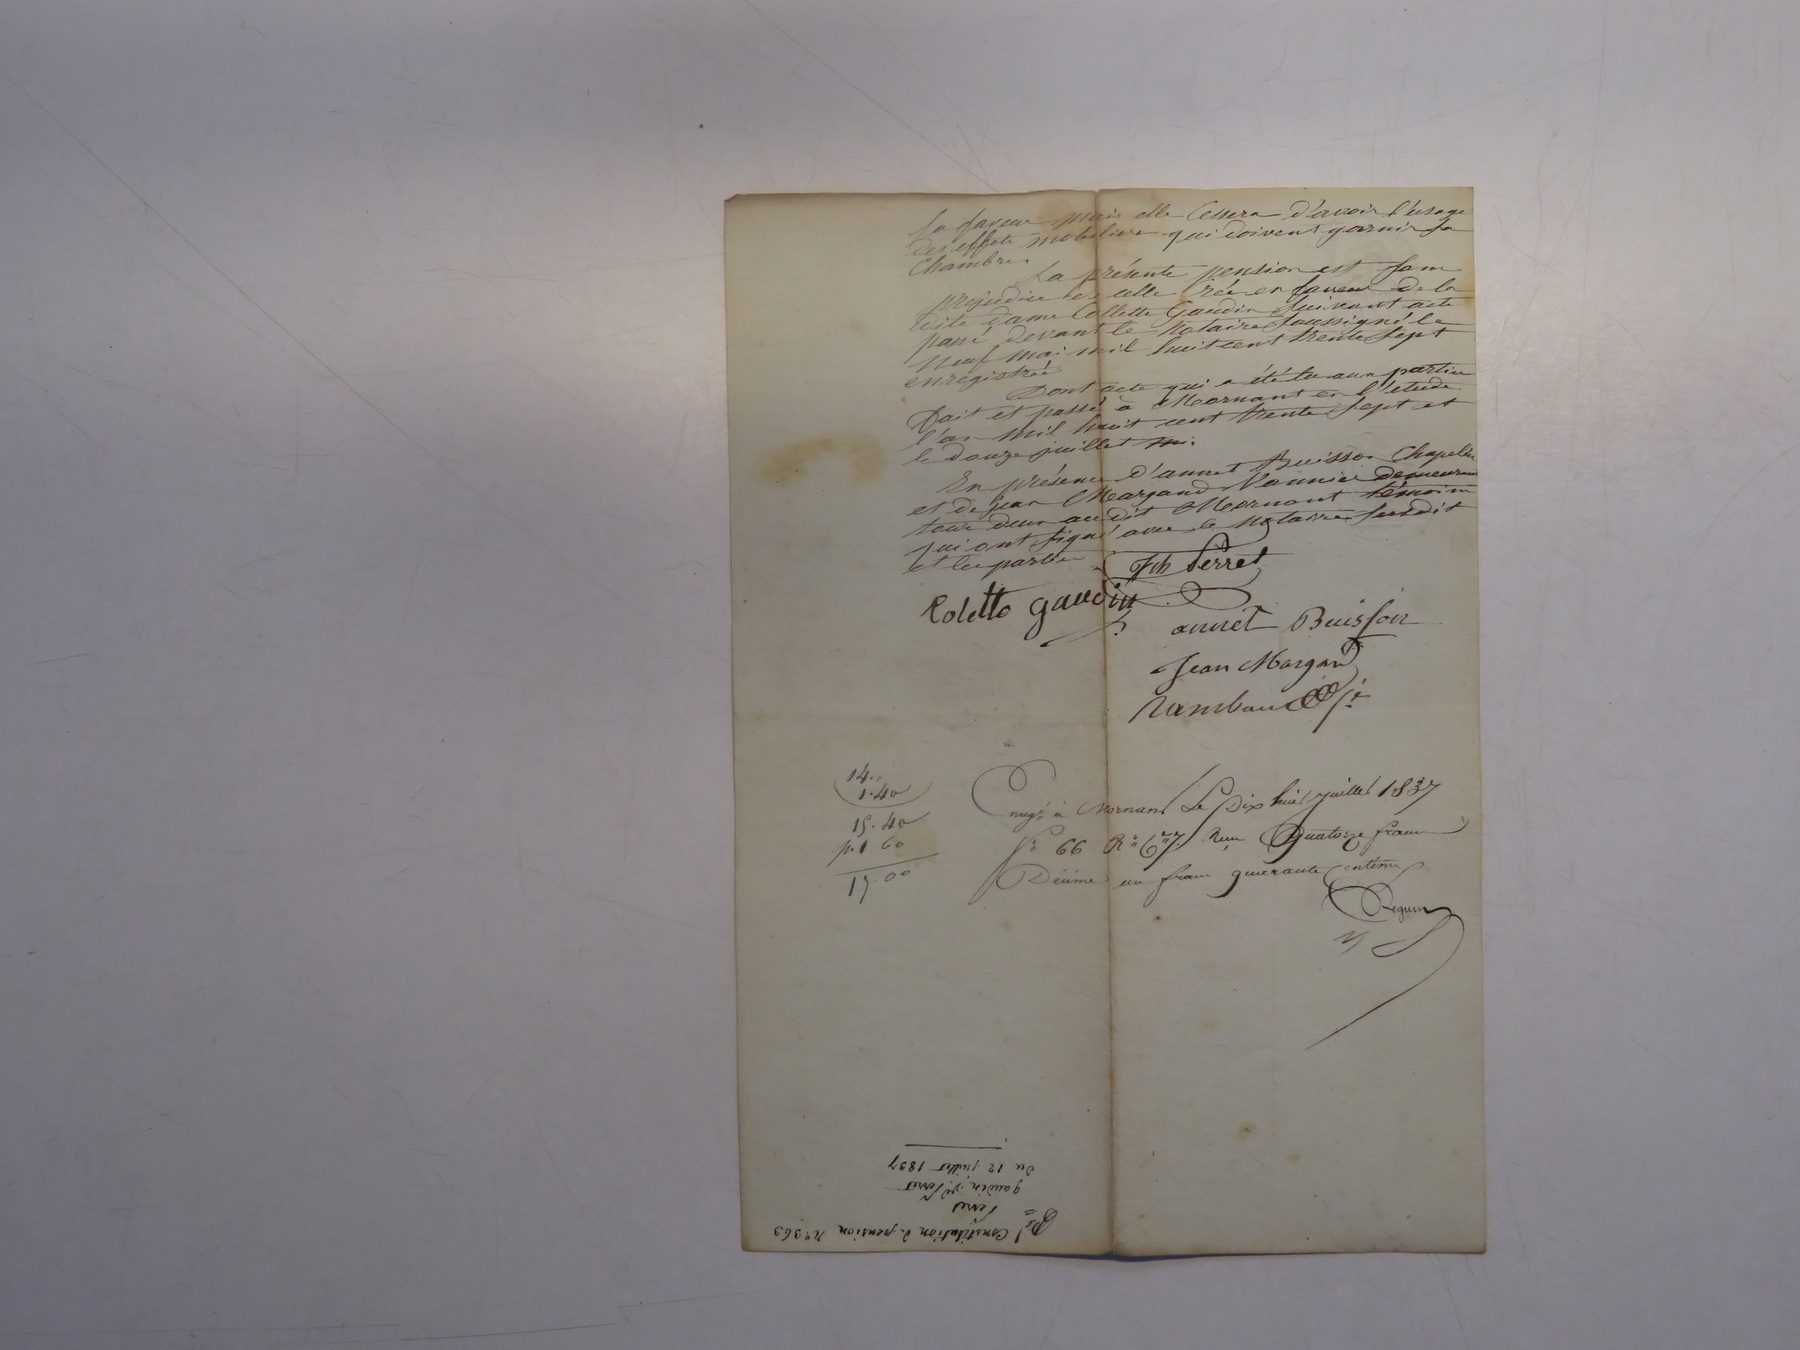 sa faveur mais elle cessera d'avoir l'usage
des effets mobiliers qui doivent garnir sa
Chambre.
La présente pension est sans
préjudice de celle créée en faveur de la
dite dame Collette Gaudin suivant acte
passé devant le notaire soussigné le
neuf mai mil huit cent trente sept
enregistré
Dont acte qui a été lu aux parties
fait et passé à Mornant en l'étude
l'an mil huit cent trente sept et
le douze juillet
En présence d'annet Buisson Chapelier
et de jean Margand demeurant
tous deux au dit Mornant témoins
qui ont signé avec le notaire susdit
et les parties
Jh Perret
Colette gaudin
annet Buisson
Jean Margand
Rambaud
14.
1.40
15.40
p. 1 60
17.00
Enregé à Mornant Le Dix huit juillet 1837
fo 66 Ro Quatorze francs
Décime un franc quarante Centimes
Constitution de pension No 363
Perret
gaudin ve Perret
Du 12 juillet 1837